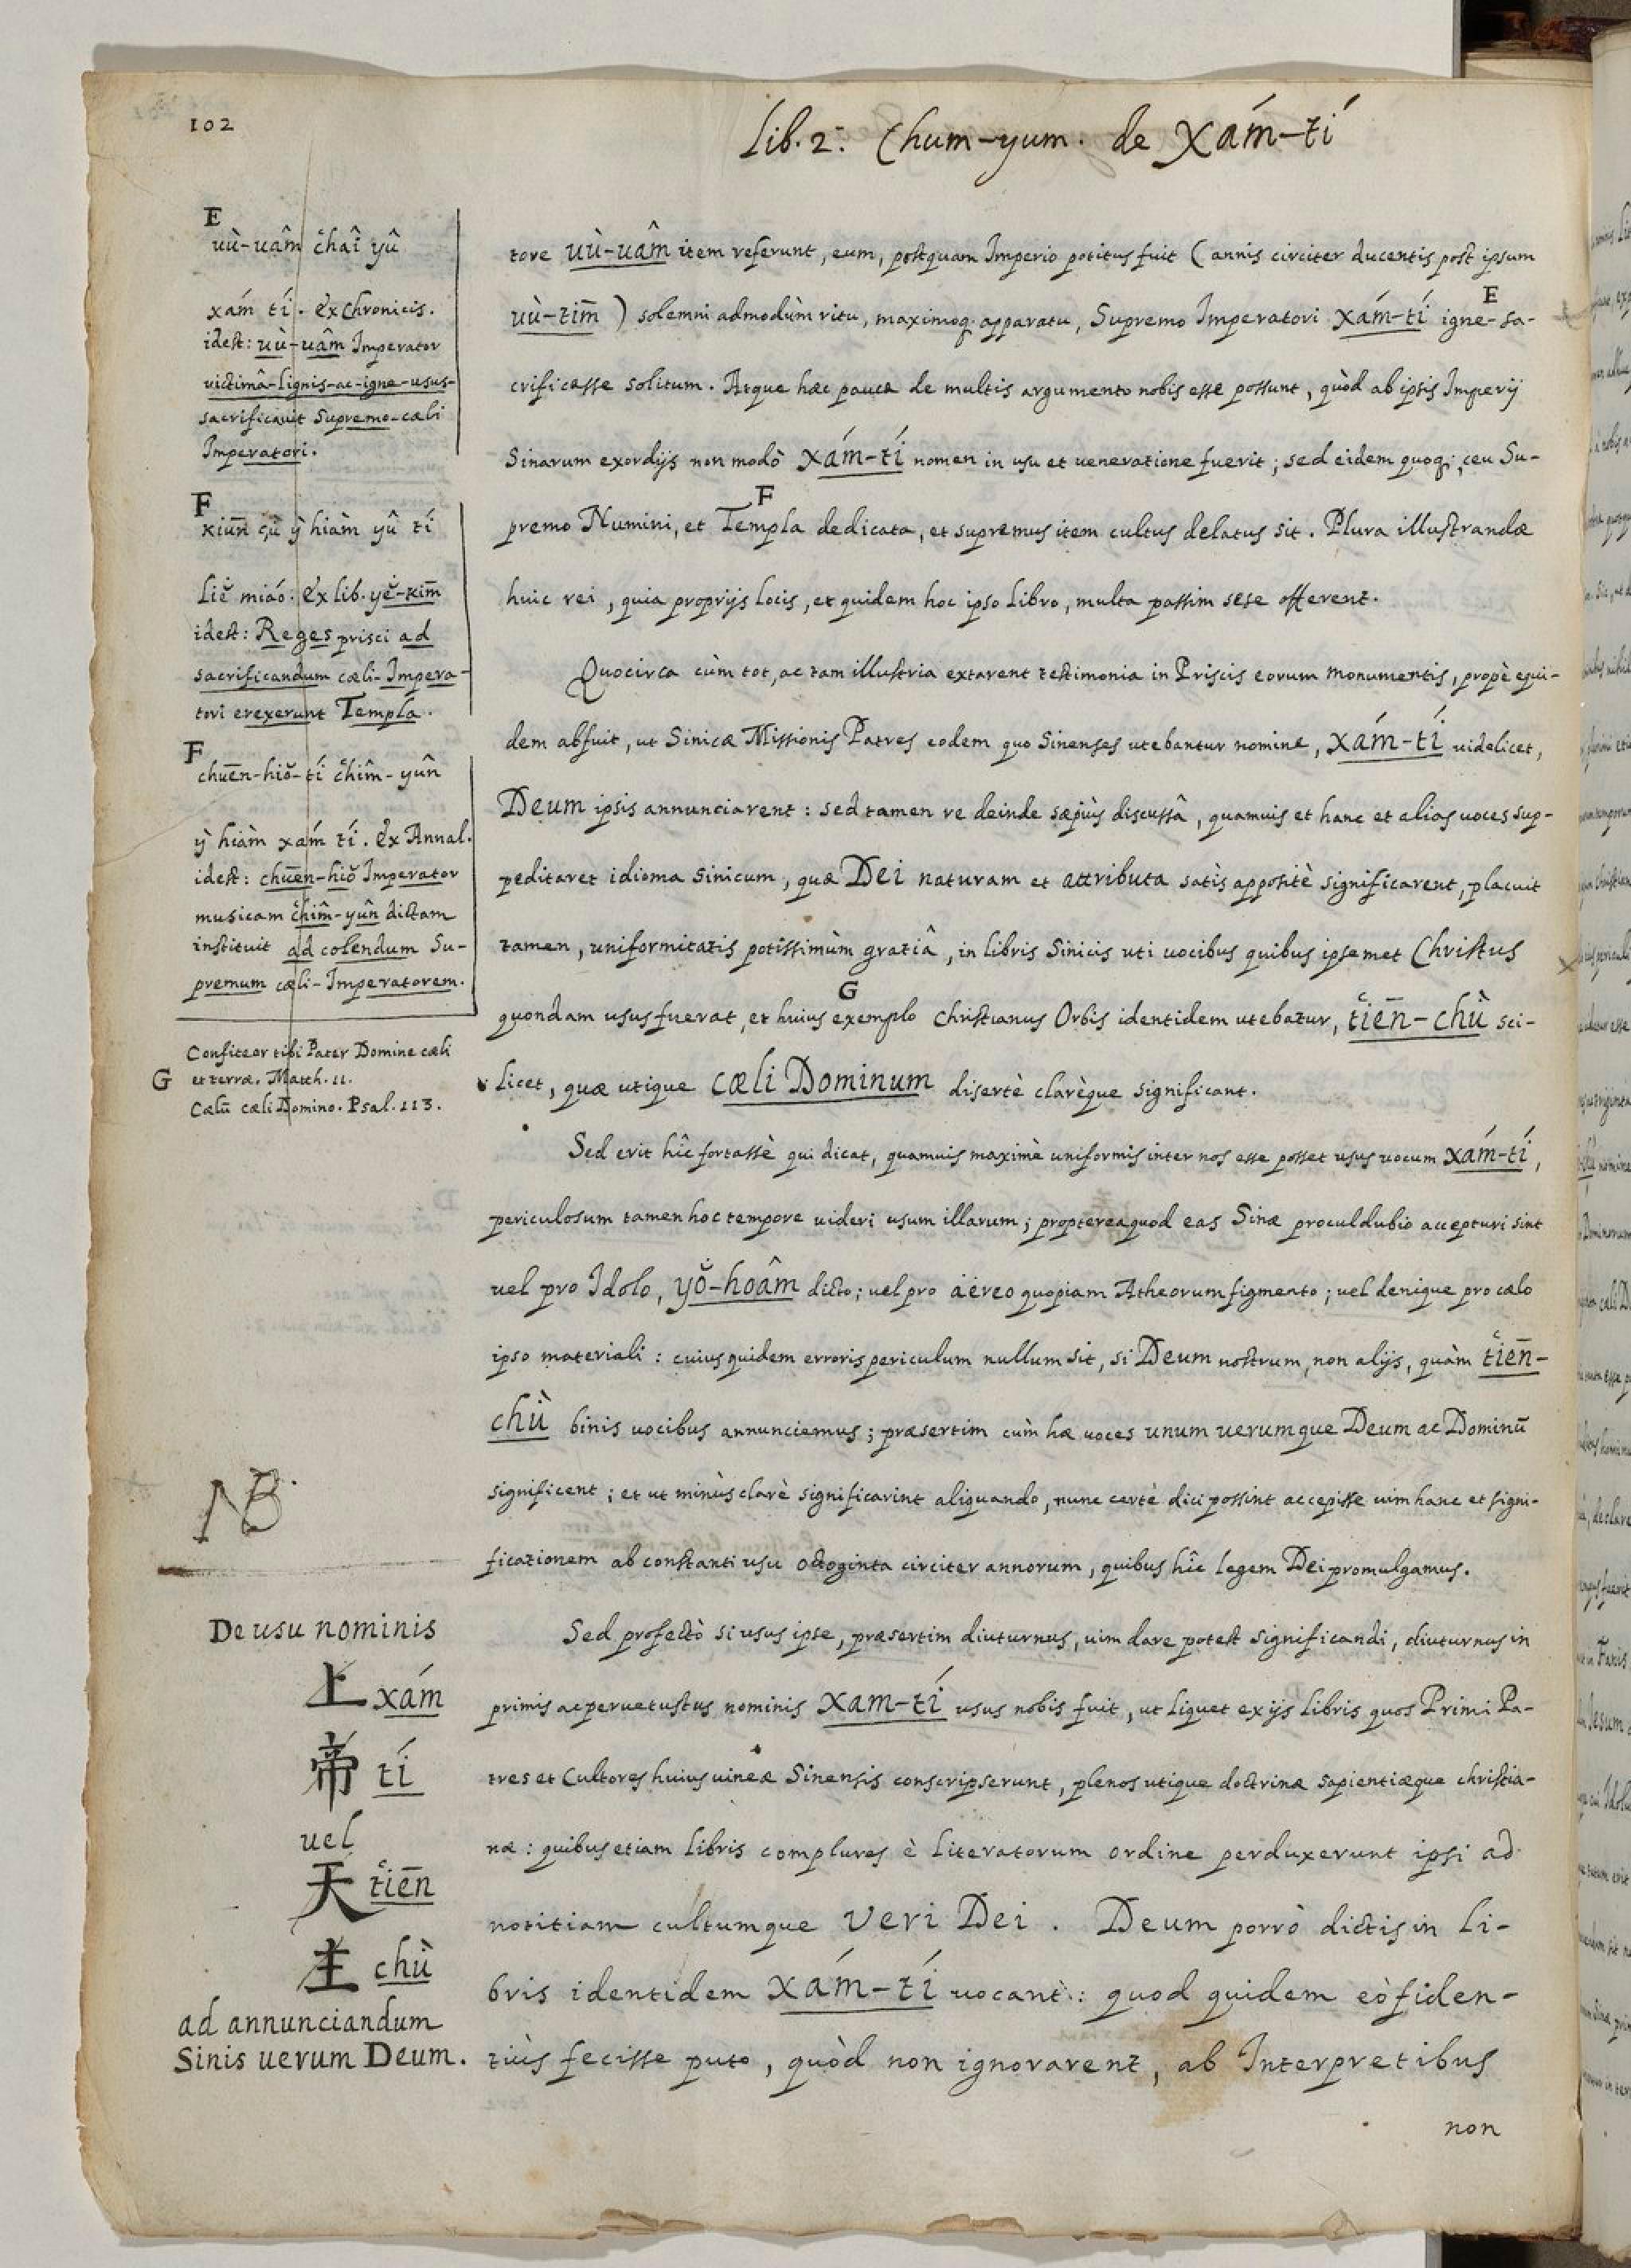 102
Lib. 2. Chum-yum. de Xám-tí
E
uù-uâm c̔haî yû
xám tí. ex Chronicis.
idest: uù-uâm Imperator
victimâ-lignis-ac-igne-usus-
sacrificauit Supremo-cæli
Imperatori.
F
kiūn çù ỳ hiàm yû tí
liĕ miáo. ex lib. yĕ-kim̄
idest: Reges prisci ad
sacrificandum cæli-Impera-
tori erexerunt Templa.
F
chuēn-hiŏ-tí c̔hîm-yûn
ỳ hiàm xám tí. ex Annal.
idest: chuēn-hiŏ Imperator
musicam c̔hîm-yûn dictam
instituit ad colendum Su-
premum cæli-Imperatorem.
Confiteor tibi Pater Domine cæli
G et terræ. Matth. 11.
Cælū cæli Domino. Psal. 113.
NB.
De usu nominis
上 xám
帝 tí
uel
天 t̔iēn
主 chù
ad annunciandum
Sinis uerum Deum.
tore uù-uâm item referunt, eum, postquam Imperio potitus fuit (annis circiter ducentis post ipsum
E
uù-tim̄) solemni admodùm ritu, maximoq; apparatu, Supremo Imperatori xám-tí igne-sa-
crificasse solitum. Atque hæc pauca de multis argumento nobis esse possunt, quòd ab ipsis Imperij
Sinarum exordijs non modò xám-tí nomen in usu et ueneratione fuerit; sed eidem quoq;, ceu Su-
F
premo Numini, et Templa dedicata, et supremus item cultus delatus sit. Plura illustrandæ
huic rei, quia proprijs locis, et quidem hoc ipso Libro, multa passim sese offerent.
Quocirca cùm tot, ac tam illustria extarent testimonia in Priscis eorum monumentis, propè equi-
dem absuit, ut Sinicæ Missionis Patres eodem quo Sinenses utebantur nomine, xám-tí uidelicet,
Deum ipsis annunciarent: sed tamen re deinde sæpiùs discussâ, quamuis et hanc et alias uoces sup-
peditaret idioma Sinicum, quæ Dei naturam et attributa satis appositè significarent, placuit
tamen, uniformitatis potissimùm gratiâ, in libris Sinicis uti uocibus quibus ipsemet Christus
G
quondam usus fuerat, et huius exemplo Christianus Orbis identidem utebatur, t̔iēn-chù sci-
licet, quæ utique cæli Dominum disertè clarèque significant.
Sed erit hîc fortassè qui dicat, quamuis maximè uniformis inter nos esse posset usus uocum xám-tí,
periculosum tamen hoc tempore uideri usum illarum; proptereaquod eas Sinæ proculdubio accepturi sint
uel pro Idolo, yŏ-hoâm dicto; uel pro aëreo quopiam Atheorum figmento; uel denique pro cælo
ipso materiali: cuius quidem erroris periculum nullum sit, si Deum nostrum, non alijs, quàm t̔iēn-
chù binis uocibus annunciemus; præsertim cùm hæ uoces unum uerumque Deum ac Dominū
significent; et ut minùs clarè significarint aliquando, nunc certè dici possint accepisse uim hanc et signi-
ficationem ab constanti usu octoginta circiter annorum, quibus hîc legem Dei promulgamus.
Sed profectò si usus ipse, præsertim diuturnus, uim dare potest significandi, diuturnus in
primis ac peruetustus nominis xam-tí usus nobis fuit, ut liquet ex ijs libris quos Primi Pa-
tres et Cultores huius uineæ Sinensis conscripserunt, plenos utique doctrinæ sapientiæque christia-
næ: quibus etiam libris complures è literatorum ordine perduxerunt ipsi ad
notitiam cultumque veri Dei. Deum porrò dictis in li-
bris identidem xám-tí uocant: quod quidem eò fiden-
tiùs fecisse puto, quòd non ignorarent, ab Interpretibus
non